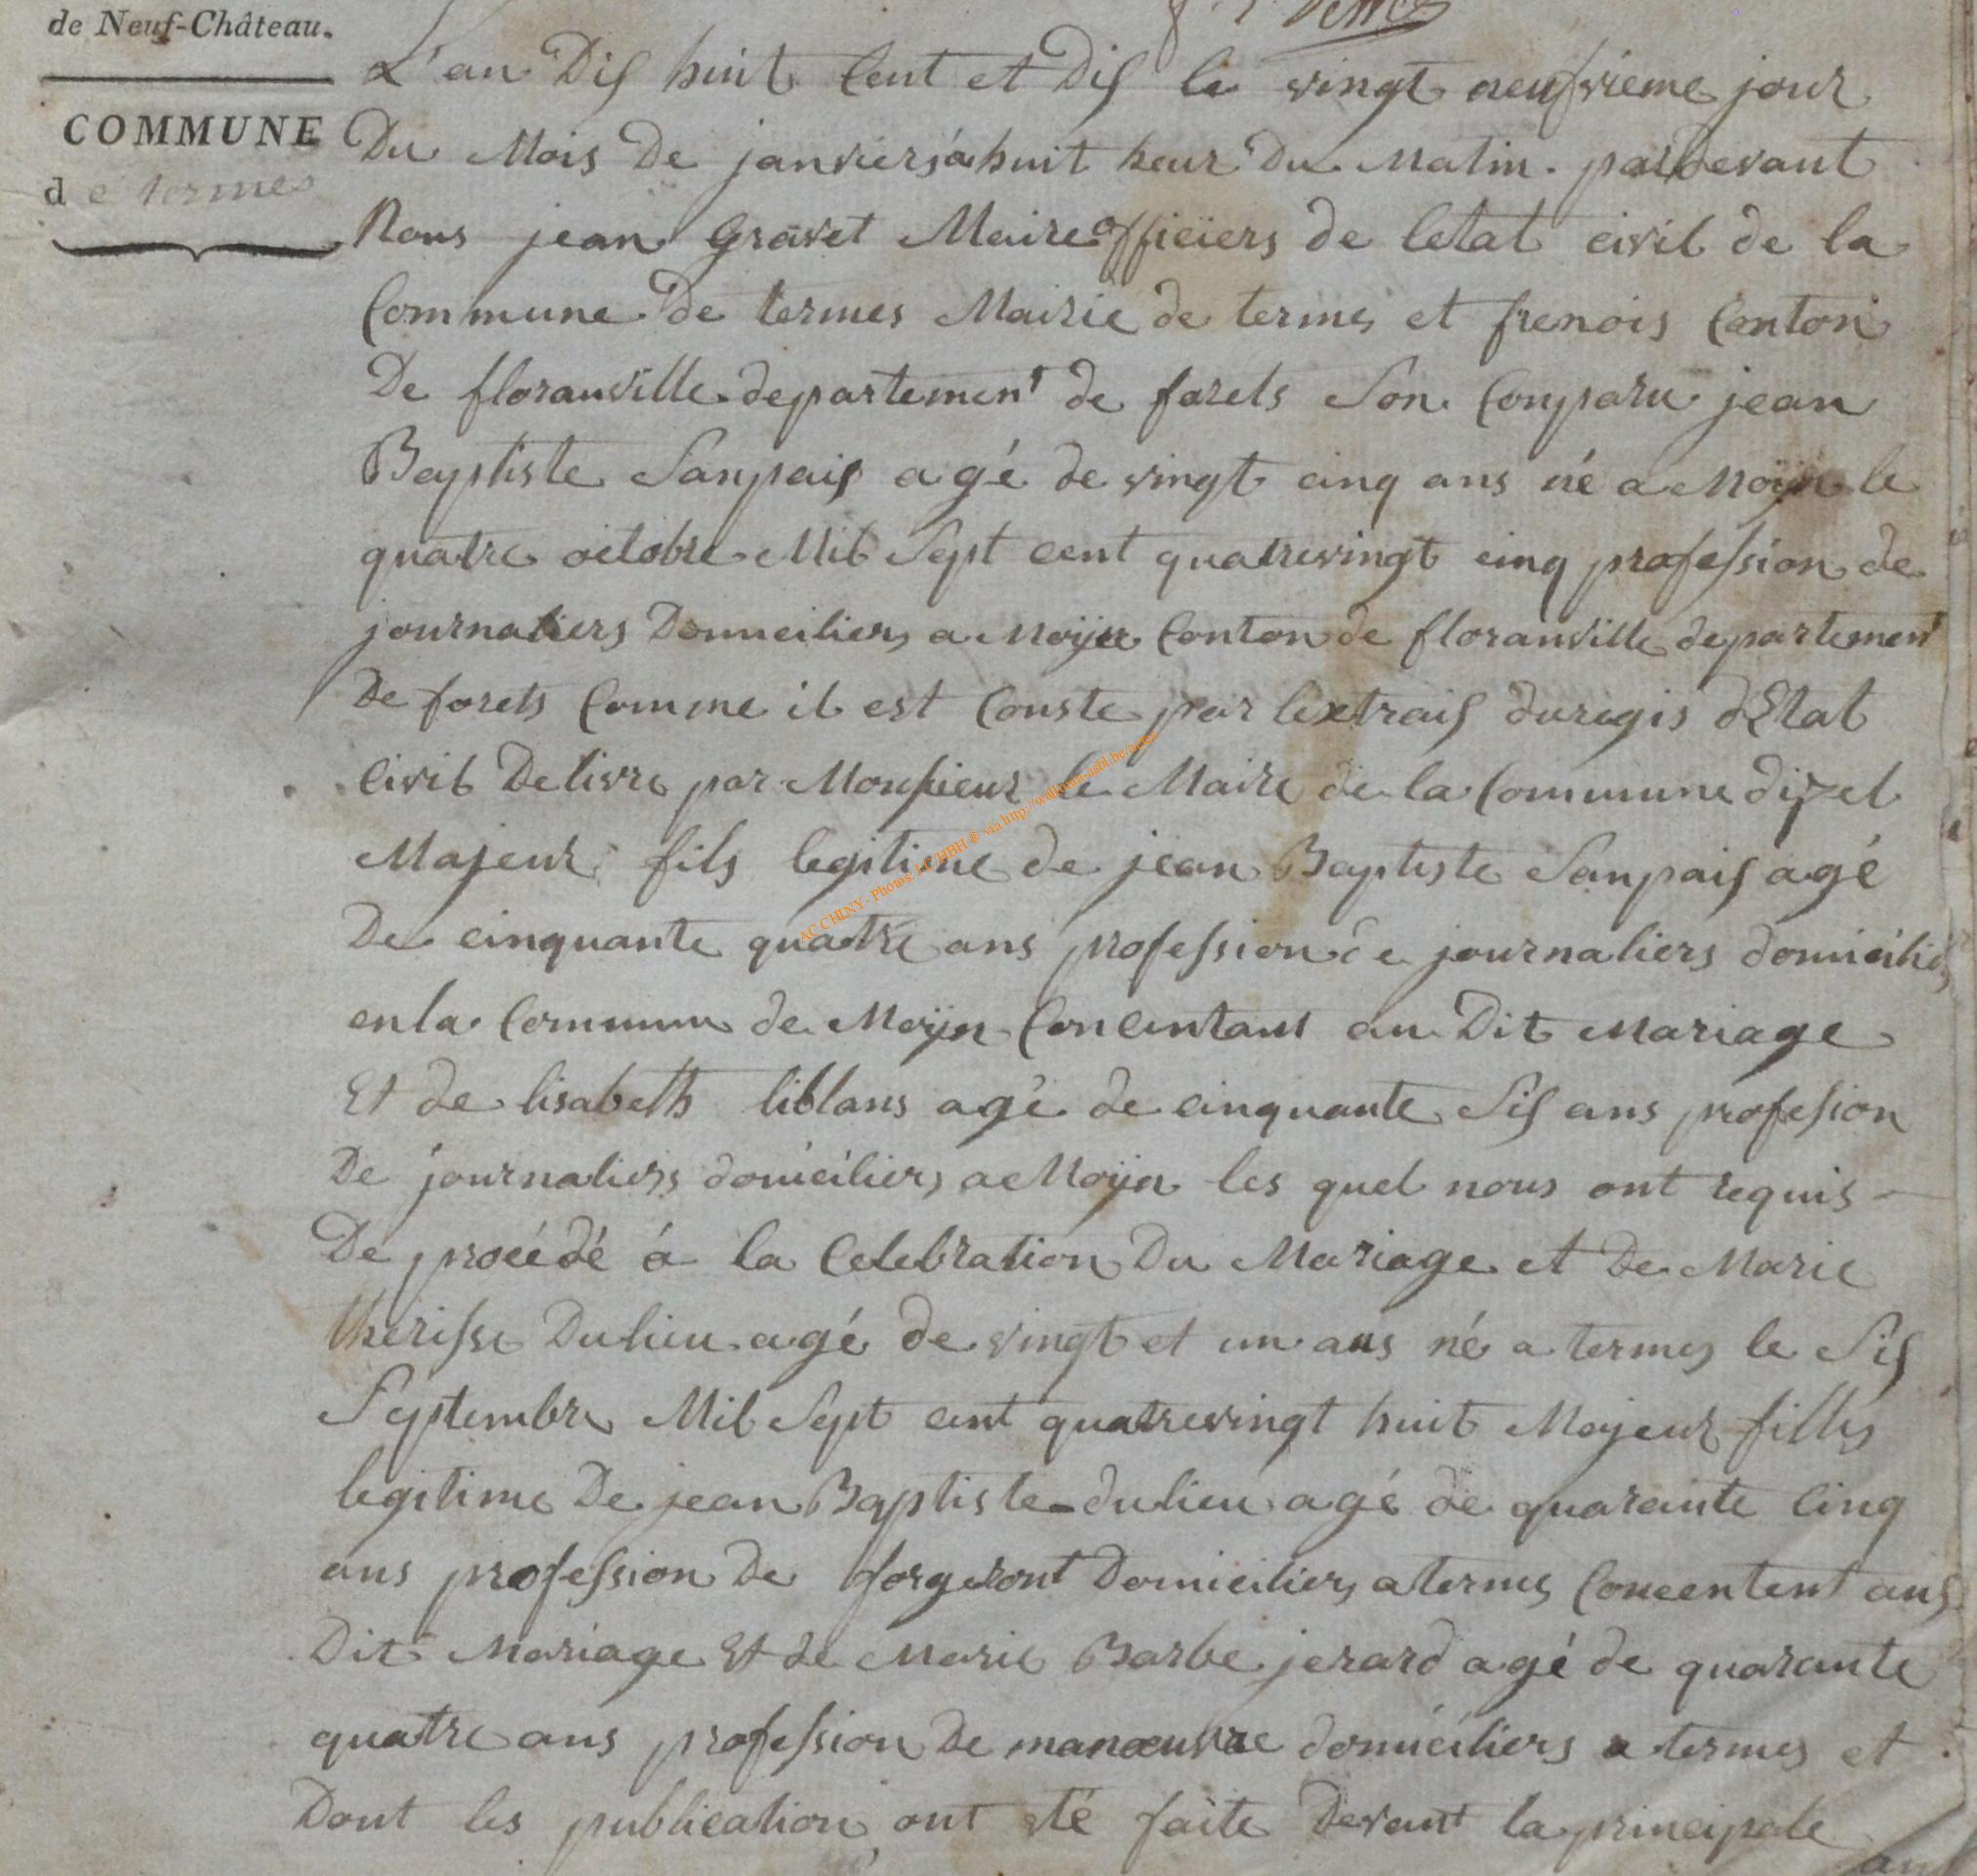 de Neuf-Château.
L'an Dis huit Cent et Dis le vingt neufvieme jour
COMMUNE
Du Mois De janvier à huit heur Du Matin. pardevant
de termes
Nous jean Gravet Maire officiers de letat civil de la
Commune De termes Mairie de termes et frenois Canton
De floranville departement de forets Son Conparu jean
Baptiste Sanpais agé de vingt cinq ans né a Moÿn le
quatre octobre Mil Sept cent quatrevingt cinq profession de
journaliers Domiciliers a Moÿen Canton de floranville departement
De forets Comme il est Conste par lextrais du regis dEtat
Civil Delivre par Monsieur le Maire de la Commune dizel
Majeur fils legitime de jean Baptiste Sanpais agé
De cinquante quatre ans profession de journaliers domiciliés
en la Commun de Moÿn Concentant au Dit Mariage
Et de lisabeth liblans agé de cinquante Sis ans profesion
De journaliers domiciliers a Moÿn les quel nous ont requis
De procédé á la Celebration Du Mariage et De Marie
therisse Dulieu agé de vingt et un ans né a termes le Sis
Septembre Mil Sept cent quatrevingt huit Majeur filles
legitime De jean Baptiste dulieu agé de quarante Cinq
ans profession De forgeront Domiciliers a termes Concentent aus
Dit Mariage Et de Marie Barbe jerard agé de quarante
quatre ans profession De manoeuvre domiciliers a termes et
Dont les publication ont eté faite Devant la principale
AC CHINY - Photos LC HBH ® via http://